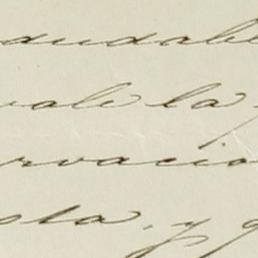 ndudable
vale la
rvacio
ola, y